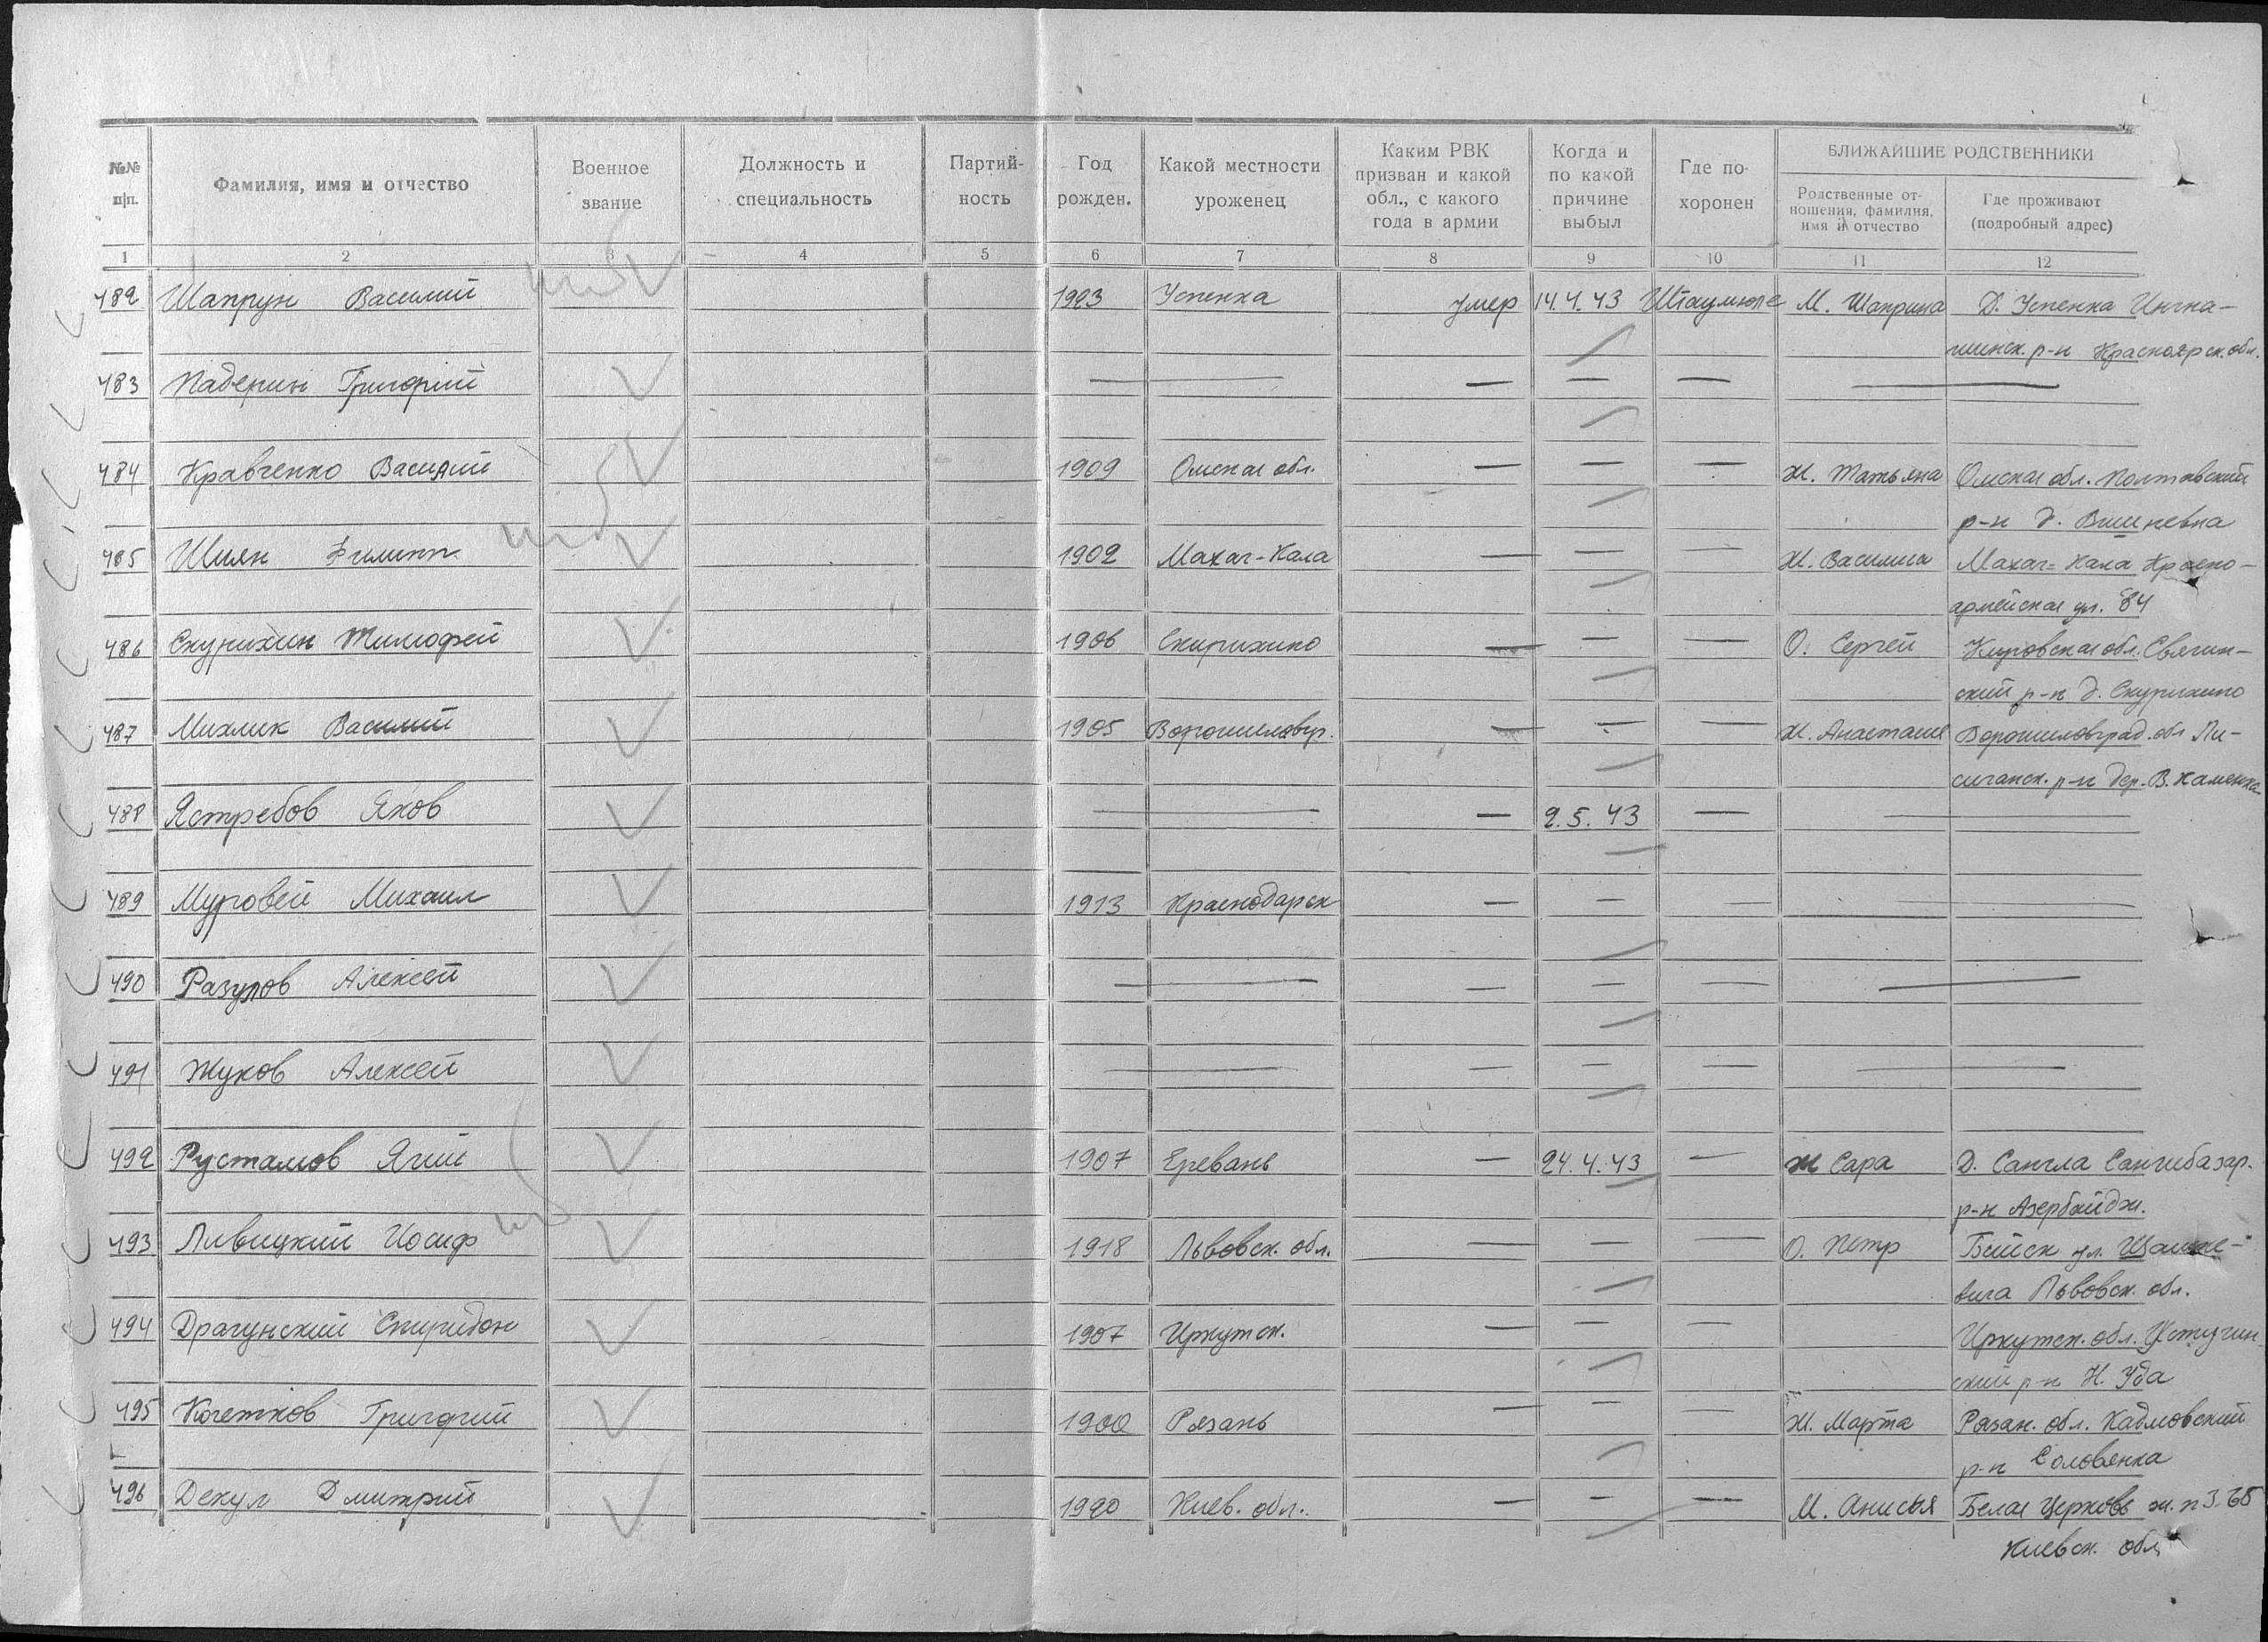 №№ п|п.
Фамилия, имя и отчество
Военное звание
Должность и специальность
Партий- ность
Год рожден.
Какой местности уроженец
Каким РВК призван и какой обл., с какого года в армии
Когда и по какой причине выбыл
Где по- хоронен
БЛИЖАЙШИЕ РОДСТВЕННИКИ
Родственные от- ношения, фамилия, имя и отчество
Где проживают (подробный адрес)
1 2 3 4 5 6 7 8 9 10 11 12
482 Шапрун Василий 1923 Успенка умер 14.4.43 М. Шаприна Д. Успенка Инга-
шинск. р-н Красноярск. обл.
483 Падерин Григорий — — — — —
484 Кравченко Василий 1909 Омская обл. — — — Ж. Татьяна Омская обл. Полтавский
р-н д. Вишневка
485 Шиян Филипп 1902 Махач-Кала — — — Ж. Василиса Махач-Кала Красно-
армейская ул. 84
486 Скурихин Тимофей 1906 Скирихино — — — О. Сергей Кировская обл. Свечин-
ский р-н д. Скурихино
487 Михлик Василий 1905 Ворошиловгр. — — — Ж. Анастасия Ворошиловград. обл Ли-
сичанск. р-н дер. В. Каменка
488 Ястребов Яков — — 2.5.43 — —
489 Муровей Михаил 1913 Краснодарск — — — —
490 Разулов Алексей — — — — —
491 Жуков Алексей — — — — —
492 Рустамов Ягии 1907 Ереван — 24.4.43 — Ж Сара Д. Сангла Сангибазар.
р-н Азербайдж.
493 Ливицкий Иосиф 1918 Львовск. обл. — — — О. Петр ул.
Львовск. обл.
494 Драгунский Спиридон 1907 Иркутск. — — — Иркутск. обл.
ский р-н Н. Уда
495 Кочетков Григорий 1900 Рязань — — — Ж. Марта Рязан. обл. Кадмовский
р-н Соловянка
496 Декул Дмитрий 1920 Киев. обл. — — — М. Анисья Белая Церковь
Киевск. обл